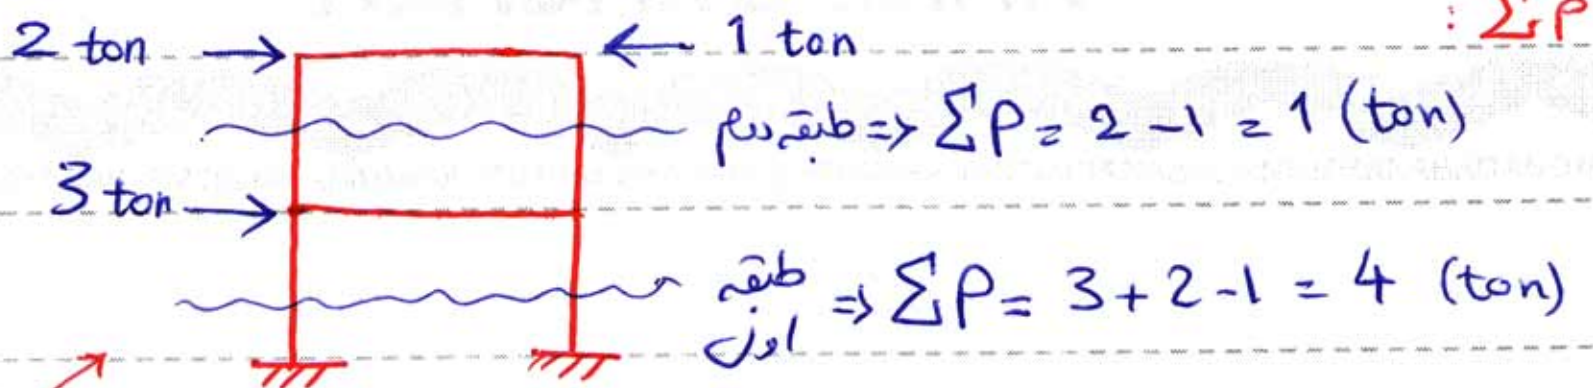 : ΣP
2 ton → ← 1 ton
طبقه دوم => ΣP = 2 - 1 = 1 (ton)
3 ton →
طبقه اول => ΣP = 3 + 2 - 1 = 4 (ton)